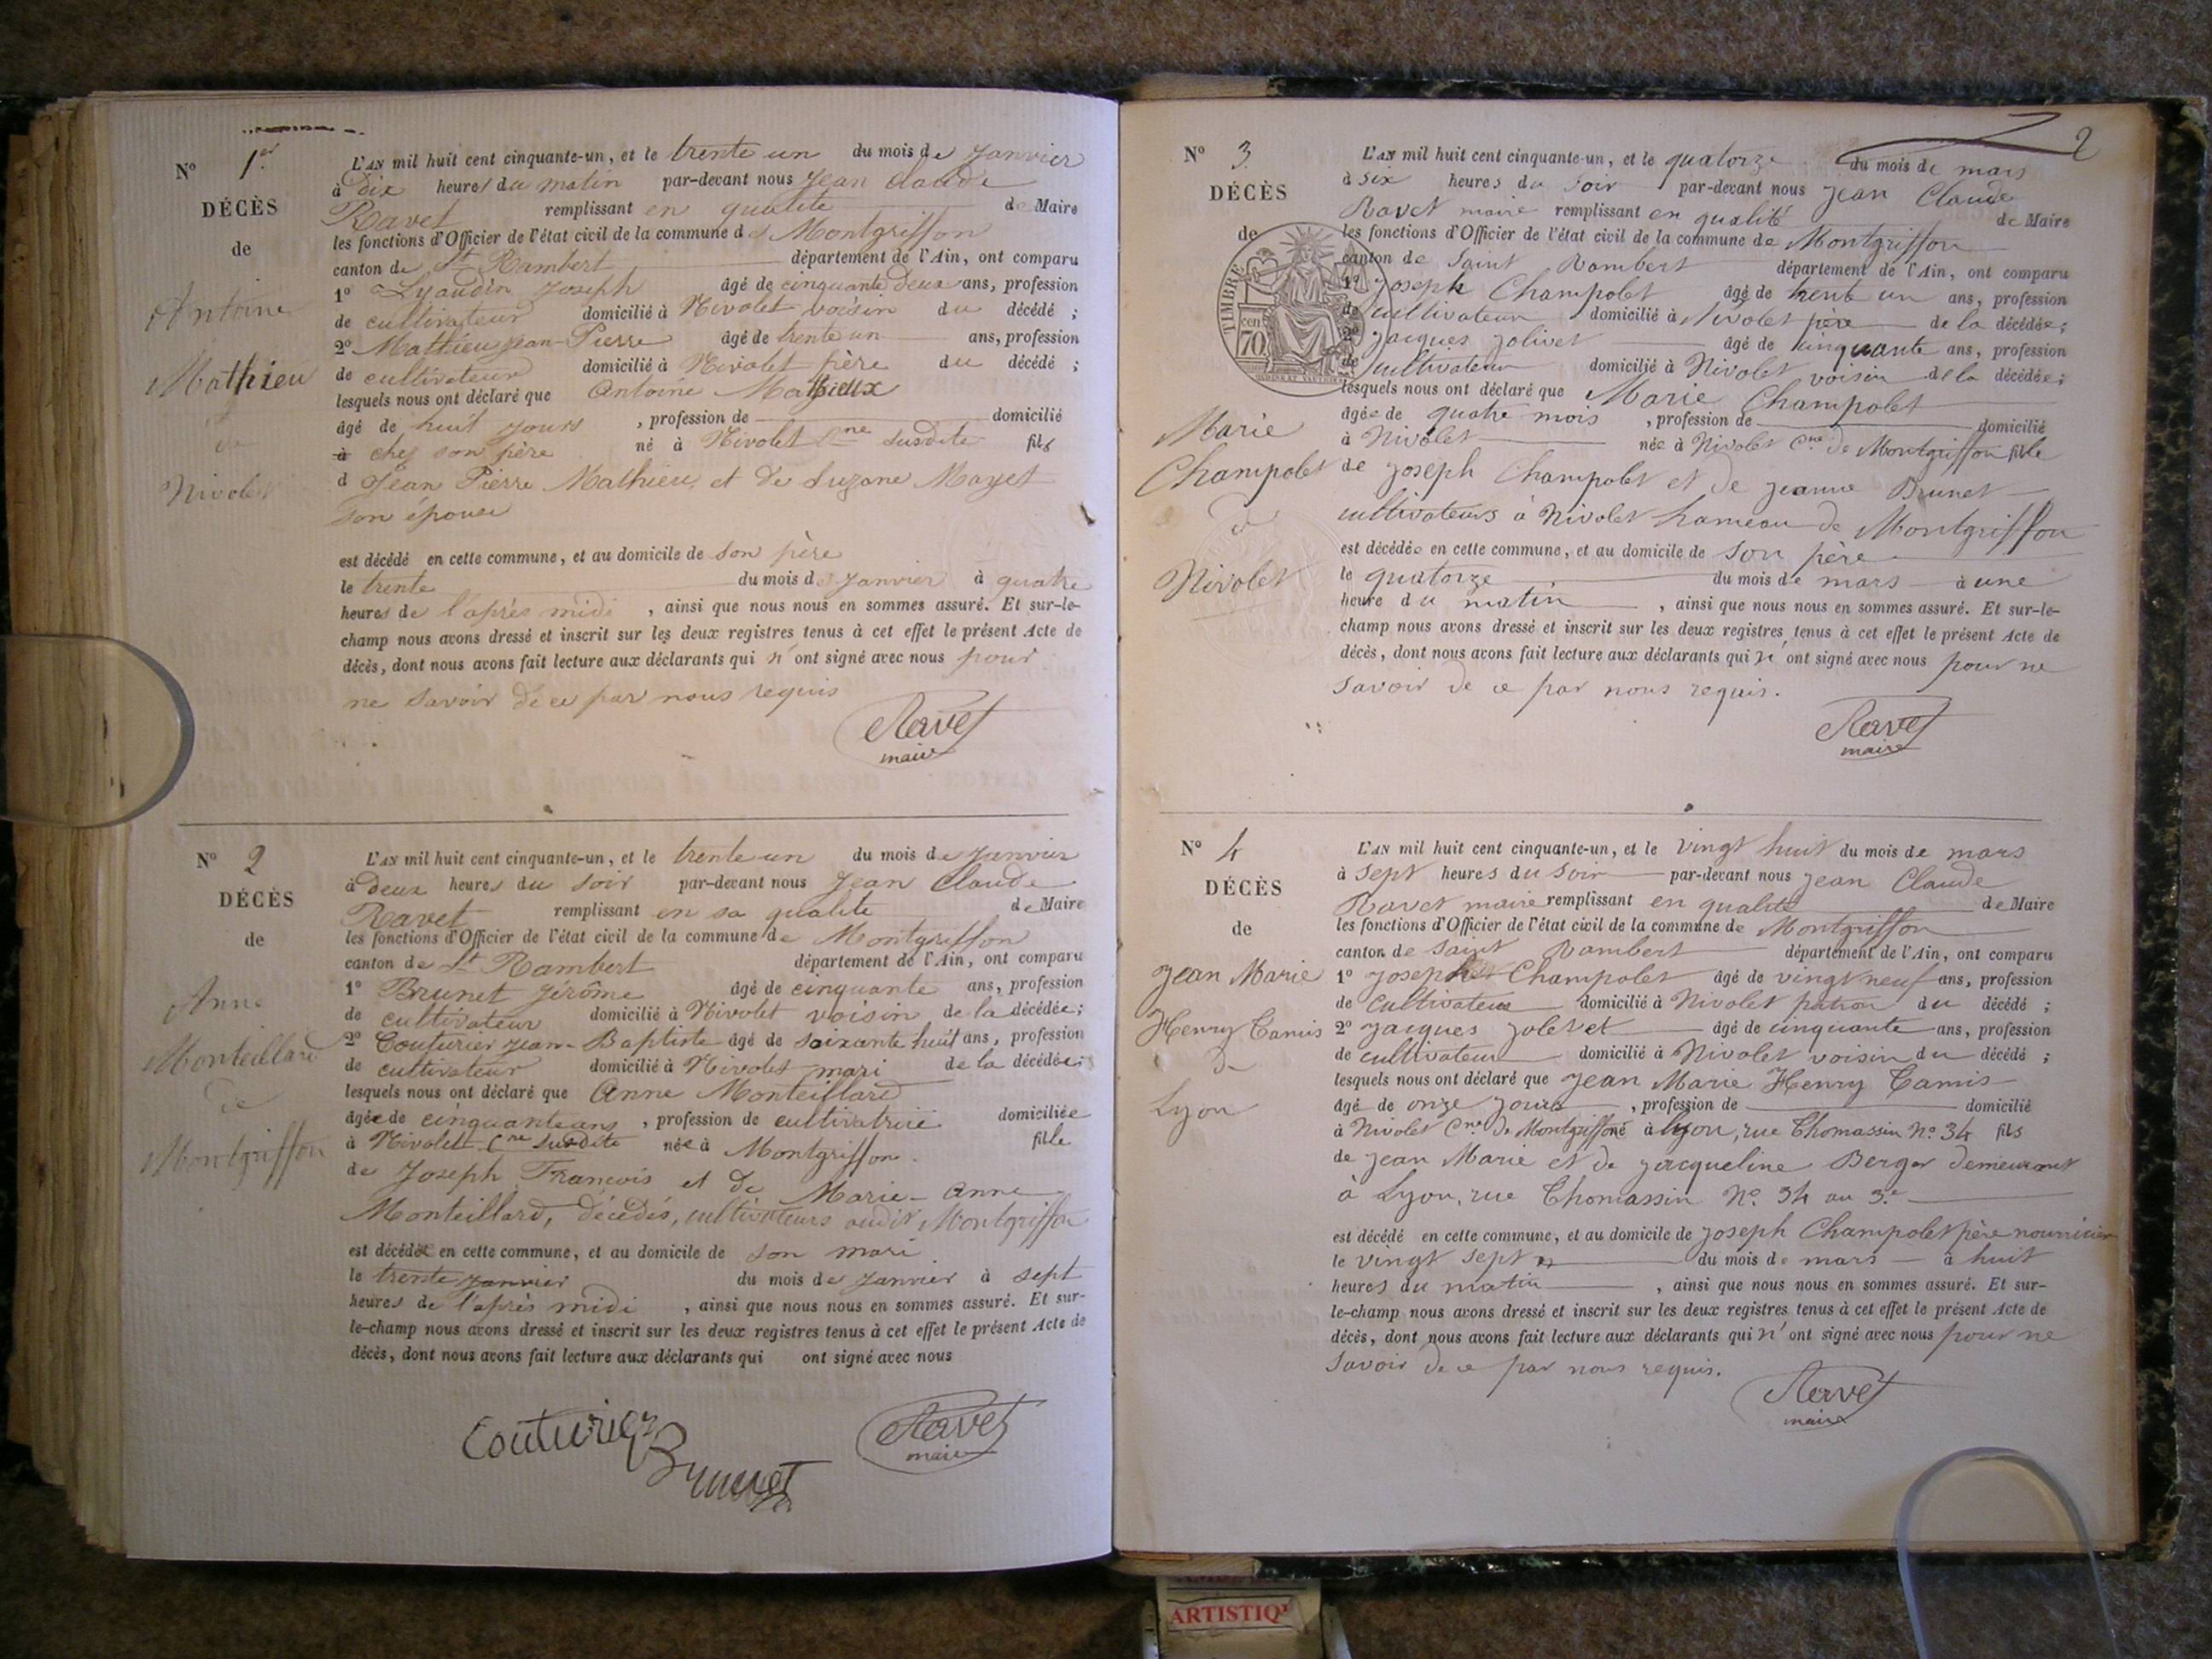 N° 1er
DÉCÈS
de
Antoine
Mathieu
de
Nivolet
L'AN mil huit cent cinquante-un, et le trente un du mois de Janvier
à Dix heures du matin par-devant nous Jean Claude
Ravet remplissant en qualité de Maire
les fonctions d'Officier de l'état civil de la commune de Montgriffon
canton de St Rambert département de l'Ain, ont comparu
1° Lyaudin Joseph âgé de cinquante deux ans, profession
de cultivateur domicilié à Nivolet voisin du décédé ;
2° Mathieu Jean-Pierre âgé de trente un ans, profession
de cultivateur domicilié à Nivolet père du décédé ;
lesquels nous ont déclaré que Antoine Mathieux
âgé de huit jours , profession de domicilié
à chez son père né à Nivolet Cne susdite fils
d Jean Pierre Mathieu et de Suzane Mayet
son épouse
est décédé en cette commune, et au domicile de son père
le trente du mois de Janvier à quatre
heures de l'après midi , ainsi que nous nous en sommes assuré. Et sur-le-
champ nous avons dressé et inscrit sur les deux registres tenus à cet effet le présent Acte de
décès, dont nous avons fait lecture aux déclarants qui n'ont signé avec nous pour
ne savoir de ce par nous requis
Ravet
maire
N° 2
DÉCÈS
de
Anne
Monteillard
de
Montgriffon
L'AN mil huit cent cinquante-un, et le trente un du mois de Janvier
à deux heures du soir par-devant nous Jean Claude
Ravet remplissant en sa qualité de Maire
les fonctions d'Officier de l'état civil de la commune de Montgriffon
canton de St Rambert département de l'Ain, ont comparu
1° Brunet Jérôme âgé de cinquante ans, profession
de cultivateur domicilié à Nivolet voisin de la décédée;
2° Couturier Jean-Baptiste âgé de soixante huit ans, profession
de cultivateur domicilié à Nivolet mari de la décédée;
lesquels nous ont déclaré que Anne Monteillard
âgée de cinquante ans , profession de cultivatrice domiciliée
à Nivolet Cne susdite née à Montgriffon fille
de Joseph François et de Marie-Anne
Monteillard, décédés, cultivateurs audit Montgriffon
est décédée en cette commune, et au domicile de son mari
le trente janvier du mois de Janvier à sept
heures de l'après midi , ainsi que nous nous en sommes assuré. Et sur-
le-champ nous avons dressé et inscrit sur les deux registres tenus à cet effet le présent Acte de
décès, dont nous avons fait lecture aux déclarants qui ont signé avec nous
Couturier
Brunet
Ravet
maire
2
N° 3
DÉCÈS
de
TIMBRE
70 cent
Marie
Champolet
de
Nivolet
L'AN mil huit cent cinquante-un, et le quatorze du mois de mars
à six heures du soir par-devant nous Jean Claude
Ravet maire remplissant en qualité de Maire
les fonctions d'Officier de l'état civil de la commune de Montgriffon
canton de Saint Rambert département de l'Ain, ont comparu
1° Joseph Champolet âgé de trente un ans, profession
de cultivateur domicilié à Nivolet père de la décédée;
2° Jacques Jolivet âgé de cinquante ans, profession
de cultivateur domicilié à Nivolet voisin de la décédée;
lesquels nous ont déclaré que Marie Champolet
âgée de quatre mois , profession de domicilié
à Nivolet née à Nivolet Cne de Montgriffon fille
de Joseph Champolet et de Jeanne Brunet
cultivateurs à Nivolet hameau de Montgriffon
est décédée en cette commune, et au domicile de son père
le quatorze du mois de mars à une
heure du matin , ainsi que nous nous en sommes assuré. Et sur-le-
champ nous avons dressé et inscrit sur les deux registres tenus à cet effet le présent Acte de
décès, dont nous avons fait lecture aux déclarants qui n'ont signé avec nous pour ne
savoir de ce par nous requis.
Ravet
maire
N° 4
DÉCÈS
de
Jean Marie
Henry Camis
de
Lyon
L'AN mil huit cent cinquante-un, et le vingt huit du mois de mars
à sept heures du soir par-devant nous Jean Claude
Ravet maire remplissant en qualité de Maire
les fonctions d'Officier de l'état civil de la commune de Montgriffon
canton de Saint Rambert département de l'Ain, ont comparu
1° Joseph Champolet âgé de vingt neuf ans, profession
de cultivateur domicilié à Nivolet patron du décédé ;
2° Jacques Jolivet âgé de cinquante ans, profession
de cultivateur domicilié à Nivolet voisin du décédé ;
lesquels nous ont déclaré que Jean Marie Henry Camis
âgé de onze jours , profession de domicilié
à Nivolet Cne de Montgriffon né à Lyon, rue Thomassin N° 34 fils
de Jean Marie et de Jacqueline Berger demeurant
à Lyon, rue Thomassin N° 34 au 3e
est décédé en cette commune, et au domicile de Joseph Champolet père nourricier
le vingt sept du mois de mars à huit
heures du matin , ainsi que nous nous en sommes assuré. Et sur-
le-champ nous avons dressé et inscrit sur les deux registres tenus à cet effet le présent Acte de
décès, dont nous avons fait lecture aux déclarants qui n'ont signé avec nous pour ne
savoir de ce par nous requis.
Ravet
maire
ARTISTIQ